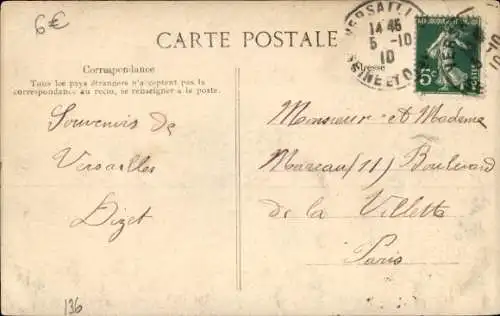 6€
CARTE POSTALE
VERSAILLES
14 45
5 -10
10
SEINE ET O
5c
POSTES
Correspondance
Adresse
Tous les pays étrangers n'acceptent pas la
correspondance au recto, se renseigner à la poste.
Souvenirs de
Versailles
Dizet
Monsieur et Madame
Mareau (11) Boulevard
de la Villette
Paris
136